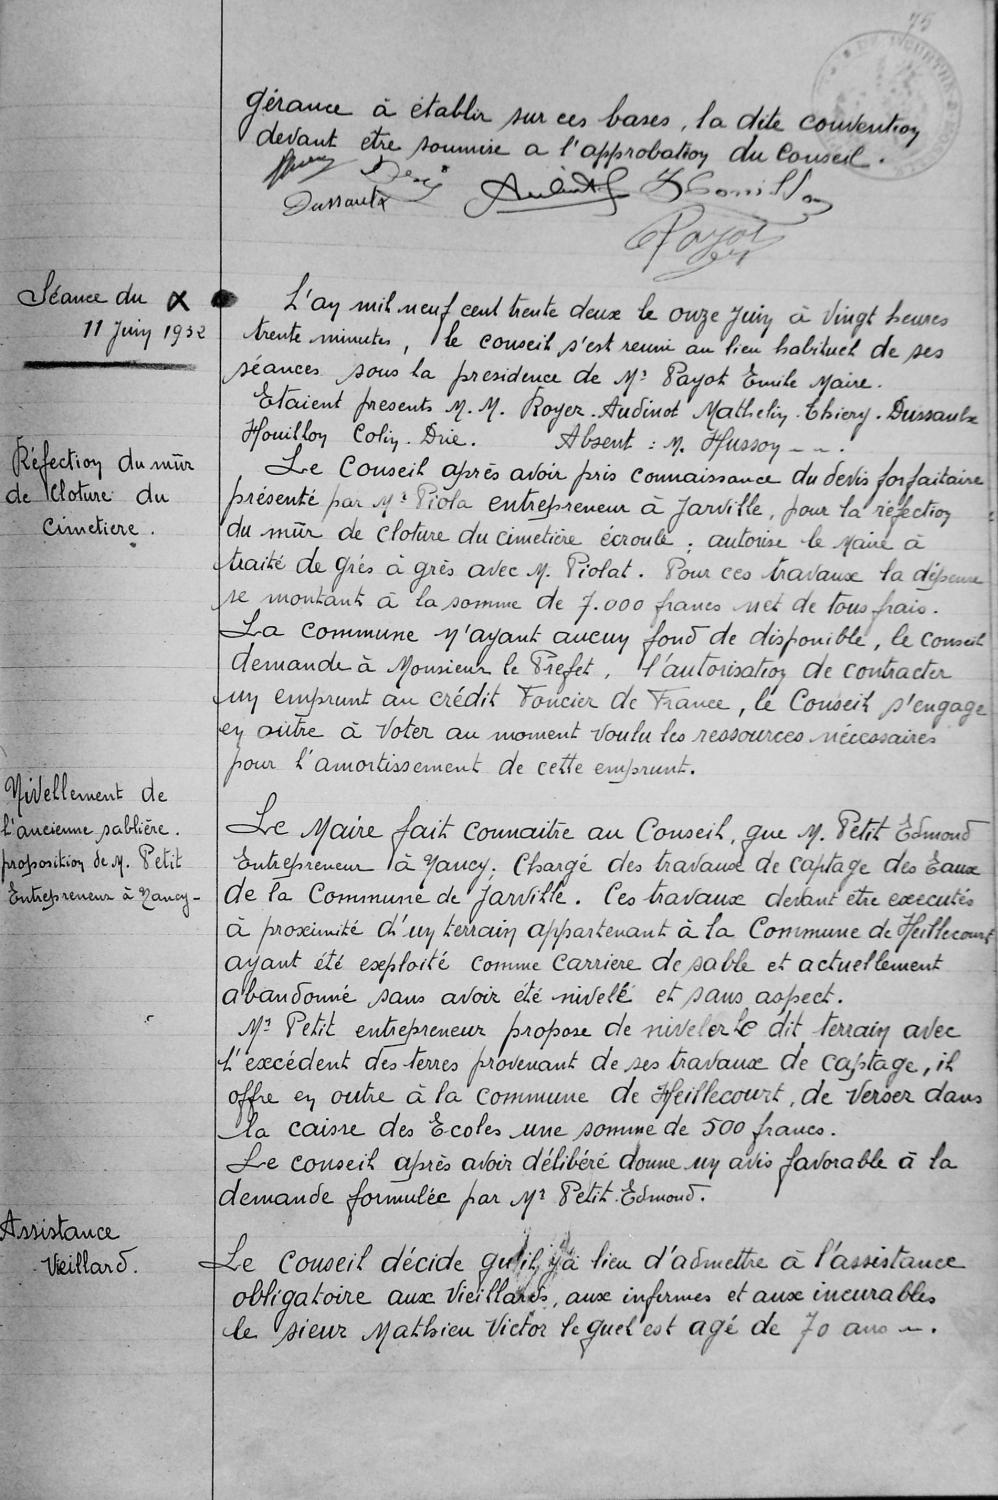 75
gérance à établir sur ces bases, la dite convention
devant etre soumise a l'approbation du Conseil.
Dussaulx
Payot
Séance du
11 Juin 1932
L'an mil neuf cent trente deux le onze Juin à vingt heures
trente minutes, le conseil s'est reuni au lieu habituel de ses
séances sous la presidence de Mr Payot Emile Maire.
Etaient presents M.M. Royer. Audinot Mathelin. Thiery. Dussaulx
Houillon Colin. Drie. Absent : M. Husson
Réfection du mûr
de cloture du
Cimetiere.
Le Conseil après avoir pris connaissance du devis forfaitaire
présenté par Mr Piola entrepreneur à Jarville, pour la réfection
du mûr de cloture du cimetière écroulé; autorise le Maire à
traité de grés à grès avec M. Piolat. Pour ces travaux la dépense
se montant à la somme de 7.000 francs net de tous frais.
La commune n'ayant aucun fond de disponible, le conseil
demande à Monsieur le Prefet, l'autorisation de contracter
un emprunt au crédit Foncier de France, le Conseil s'engage
en outre à voter au moment voulu les ressources nécessaires
pour l'amortissement de cette emprunt.
Nivellement de
l'ancienne sablière.
proposition de M. Petit
Entrepreneur à Nancy-
Le Maire fait connaitre au Conseil, que M. Petit Edmond
Entrepreneur à Nancy. Chargé des travaux de captage des Eaux
de la Commune de Jarville. Ces travaux devant être executés
à proximité d'un terrain appartenant à la Commune de Heillecourt
ayant été exploité comme carriere de sable et actuellement
abandonné sans avoir été nivelé et sans aspect.
Mr Petit entrepreneur propose de niveler le dit terrain avec
l'excédent des terres provenant de ses travaux de captage, il
offre en outre à la commune de Heillecourt, de verser dans
la caisse des Ecoles une somme de 500 francs.
Le conseil après avoir délibéré donne un avis favorable à la
demande formulée par Mr Petit. Edmond.
Assistance
Vieillard.
Le Conseil décide qu'il y à lieu d'admettre à l'assistance
obligatoire aux Vieillards, aux infirmes et aux incurables
le sieur Mathieu Victor lequel est agé de 70 ans.